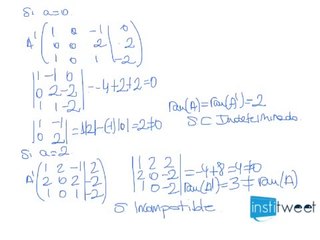 Si a=0
A' ( 1 0 -1 | 0
0 0 2 | 2
1 0 1 | -2 )
| 1 -1 0
0 2 -2
1 1 -2 | = -4+2+2=0
| 1 -1
0 2 | = 1·|2|-(-1)·|0|=2≠0
ran(A)=ran(A')=2
SC Indeterminado
Si a=2
A' ( 1 2 -1 | 2
2 0 2 | -2
1 0 1 | -2 )
| 1 2 2
2 0 -2
1 0 -2 | = -4+8=4≠0
ran(A')=3≠ran(A)
S Incompatible
institweet